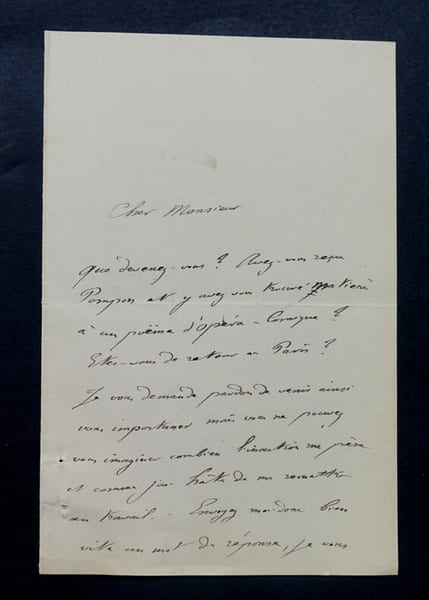 Cher Monsieur
Que devenez-vous ? Avez-vous reçu
Pompon et y avez vous trouvé matière
à un poëme d'opéra-Comique ?
Etes-vous de retour à Paris ?
Je vous demande pardon de venir ainsi
vous importuner mais vous ne pouvez
vous imaginer combien l'inaction me pèse
et comme j'ai hâte de me remettre
au travail. - Envoyez moi donc bien
vite un mot de réponse, je vous